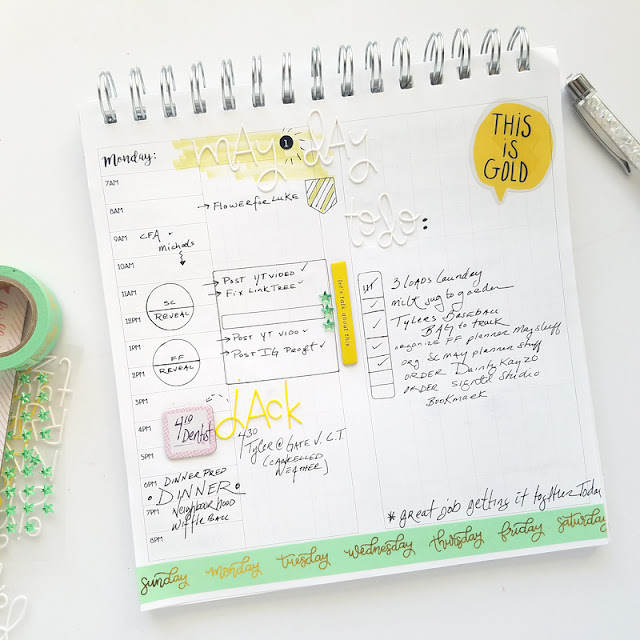 Monday:
1
may day
to do:
THIS
IS
GOLD
7AM
8AM
→ Flower for Luke
9AM
CFA +
michaels
10AM
11AM
SC
REVEAL
→ Post YT video ✓
→ Fix LinkTree ✓
12PM
1PM
FF
REVEAL
→ Post YT video ✓
Post IG Project ✓
2PM
3PM
let's talk about this
3 loads laundry
milk jug to garden
Tylers Baseball
BAG to track
organize FF planner May stuff
org SC may planner stuff
ORDER Dainty Kayzo
ORDER Studio
Bookmark
4PM
4:10
Dentist
JAck
4:30
Tyler @ GATE V. L.T.
(cancelled
Weather)
5PM
6PM
DINNER PREP
• DINNER •
7PM
Neighbourhood
Wiffle Ball
8PM
* great job getting it together Today
sunday monday tuesday wednesday thursday friday saturday